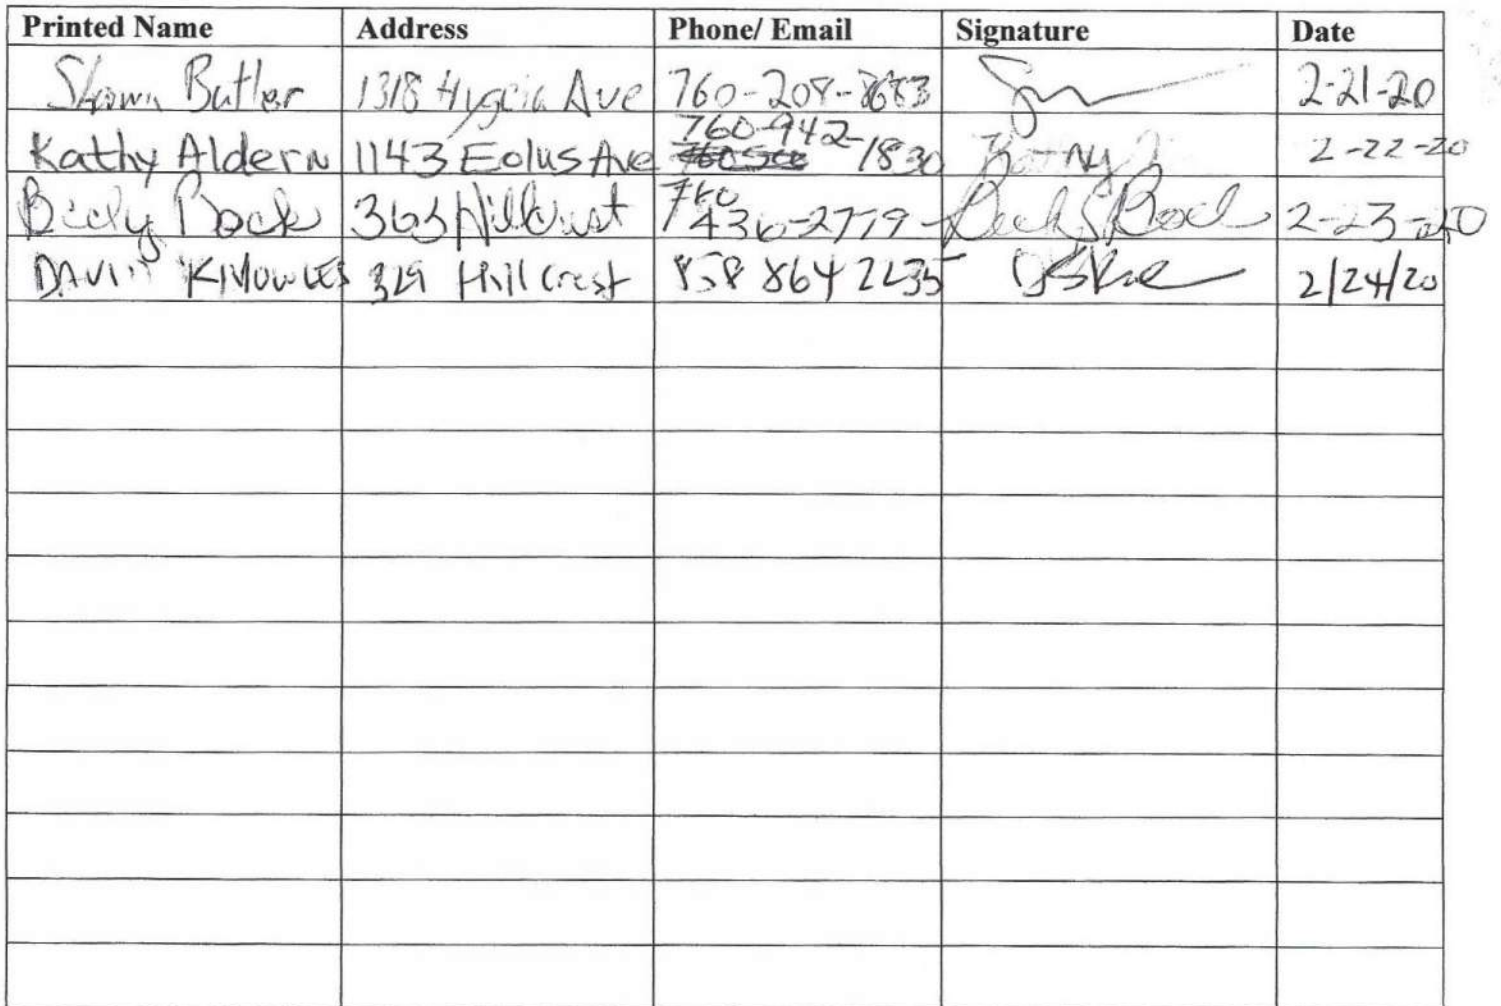 Printed Name Address Phone/ Email Signature Date
Shawn Butler 1318 Hygeia Ave 760-208-8683 2-21-20
Kathy Aldern 1143 Eolus Ave 760-942-1830 Kathy 2-22-20
Bock 363 Hillcrest 760 436-2779 Bock 2-23-20
DAVID KNOWLES 329 Hillcrest 858 864 2235 2/24/20